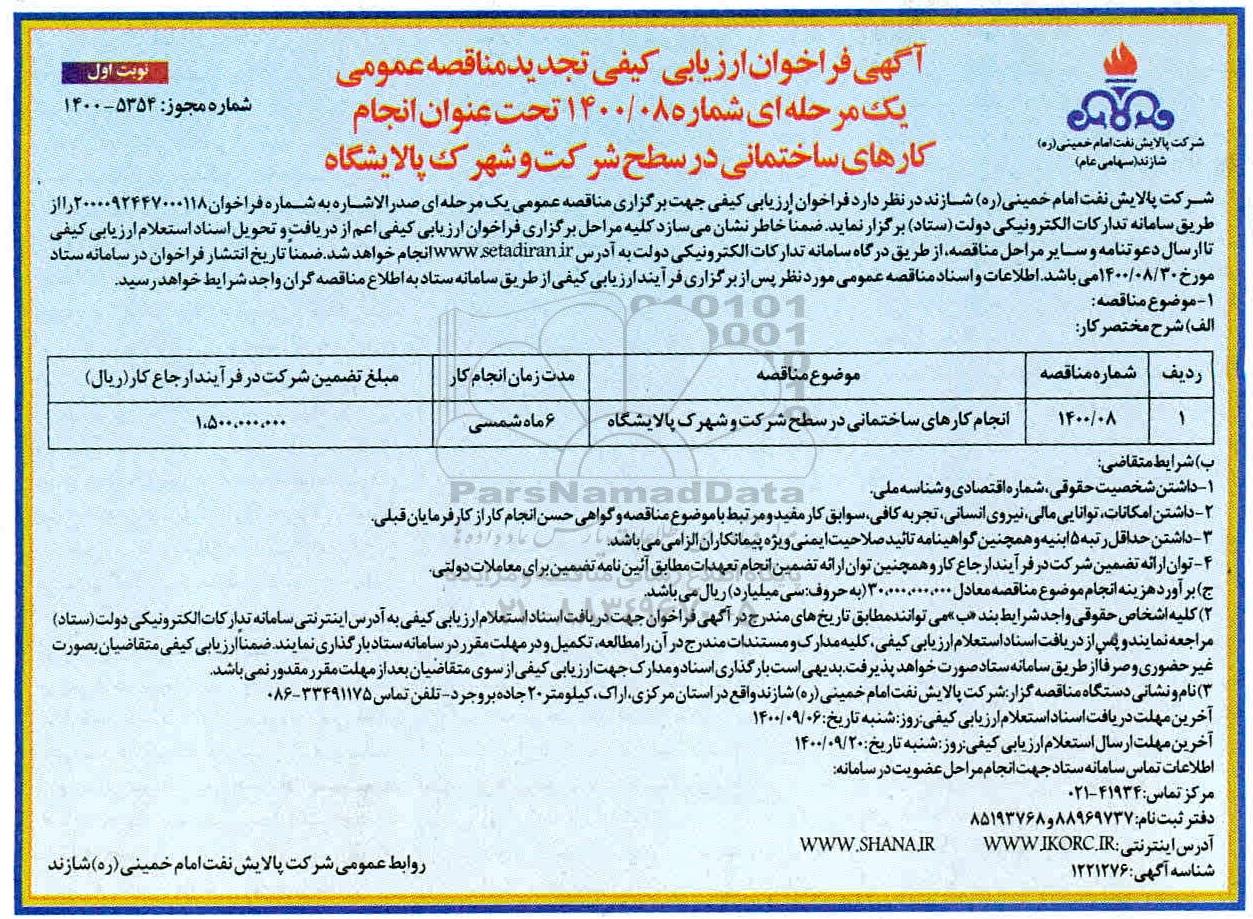 نوبت اول
شماره مجوز: ۵۳۵۴-۱۴۰۰
آگهی فراخوان ارزیابی کیفی تجدید مناقصه عمومی
یک مرحله ای شماره ۱۴۰۰/۰۸ تحت عنوان انجام
کارهای ساختمانی در سطح شرکت و شهرک پالایشگاه
شرکت پالایش نفت امام خمینی (ره)
شازند (سهامی عام)
شرکت پالایش نفت امام خمینی (ره) شازند در نظر دارد فراخوان ارزیابی کیفی جهت برگزاری مناقصه عمومی یک مرحله ای صدرالاشاره به شماره فراخوان ۲۰۰۰۰۹۲۴۴۷۰۰۰۱۱۸ را از
طریق سامانه تدارکات الکترونیکی دولت (ستاد) برگزار نماید. ضمناً خاطر نشان می سازد کلیه مراحل برگزاری فراخوان ارزیابی کیفی اعم از دریافت و تحویل اسناد استعلام ارزیابی کیفی
تا ارسال دعوتنامه و سایر مراحل مناقصه، از طریق درگاه سامانه تدارکات الکترونیکی دولت به آدرس www.setadiran.ir انجام خواهد شد. ضمناً تاریخ انتشار فراخوان در سامانه ستاد
مورخ ۱۴۰۰/۰۸/۳۰ می باشد. اطلاعات و اسناد مناقصه عمومی مورد نظر پس از برگزاری فرآیند ارزیابی کیفی از طریق سامانه ستاد به اطلاع مناقصه گران واجد شرایط خواهد رسید.
۱-موضوع مناقصه:
الف) شرح مختصر کار:
ردیف شماره مناقصه موضوع مناقصه مدت زمان انجام کار مبلغ تضمین شرکت در فرآیند ارجاع کار (ریال)
۱ ۱۴۰۰/۰۸ انجام کارهای ساختمانی در سطح شرکت و شهرک پالایشگاه ۶ ماه شمسی ۱,۵۰۰,۰۰۰,۰۰۰
ب) شرایط متقاضی:
۱-داشتن شخصیت حقوقی، شماره اقتصادی و شناسه ملی.
۲-داشتن امکانات، توانایی مالی، نیروی انسانی، تجربه کافی، سوابق کار مفید و مرتبط با موضوع مناقصه و گواهی حسن انجام کار از کارفرمایان قبلی.
۳-داشتن حداقل رتبه ۵ ابنیه و همچنین گواهینامه تائید صلاحیت ایمنی ویژه پیمانکاران الزامی می باشد.
۴-توان ارائه تضمین شرکت در فرآیند ارجاع کار و همچنین توان ارائه تضمین انجام تعهدات مطابق آئین نامه تضمین برای معاملات دولتی.
ج) برآورد هزینه انجام موضوع مناقصه معادل ۳۰,۰۰۰,۰۰۰,۰۰۰ (به حروف: سی میلیارد) ریال می باشد.
۲) کلیه اشخاص حقوقی واجد شرایط بند «ب» می توانند مطابق تاریخ های مندرج در آگهی فراخوان جهت دریافت اسناد استعلام ارزیابی کیفی به آدرس اینترنتی سامانه تدارکات الکترونیکی دولت (ستاد)
مراجعه نمایند و پس از دریافت اسناد استعلام ارزیابی کیفی، کلیه مدارک و مستندات مندرج در آن را مطالعه، تکمیل و در مهلت مقرر در سامانه ستاد بارگذاری نمایند. ضمناً ارزیابی کیفی متقاضیان بصورت
غیر حضوری و صرفاً از طریق سامانه ستاد صورت خواهد پذیرفت. بدیهی است بارگذاری اسناد و مدارک جهت ارزیابی کیفی از سوی متقاضیان بعد از مهلت مقرر مقدور نمی باشد.
۳) نام و نشانی دستگاه مناقصه گزار: شرکت پالایش نفت امام خمینی (ره) شازند واقع در استان مرکزی، اراک، کیلومتر ۲۰ جاده بروجرد - تلفن تماس ۳۳۴۹۱۱۷۵-۰۸۶
آخرین مهلت دریافت اسناد استعلام ارزیابی کیفی: روز: شنبه تاریخ: ۱۴۰۰/۰۹/۰۶
آخرین مهلت ارسال استعلام ارزیابی کیفی: روز: شنبه تاریخ: ۱۴۰۰/۰۹/۲۰
اطلاعات تماس سامانه ستاد جهت انجام مراحل عضویت در سامانه:
مرکز تماس: ۴۱۹۳۴-۰۲۱
دفتر ثبت نام: ۸۸۹۶۹۷۳۷ و ۸۵۱۹۳۷۶۸
آدرس اینترنتی: WWW.IKORC.IR WWW.SHANA.IR
شناسه آگهی: ۱۲۲۱۲۷۶
روابط عمومی شرکت پالایش نفت امام خمینی (ره) شازند
ParsNamadData